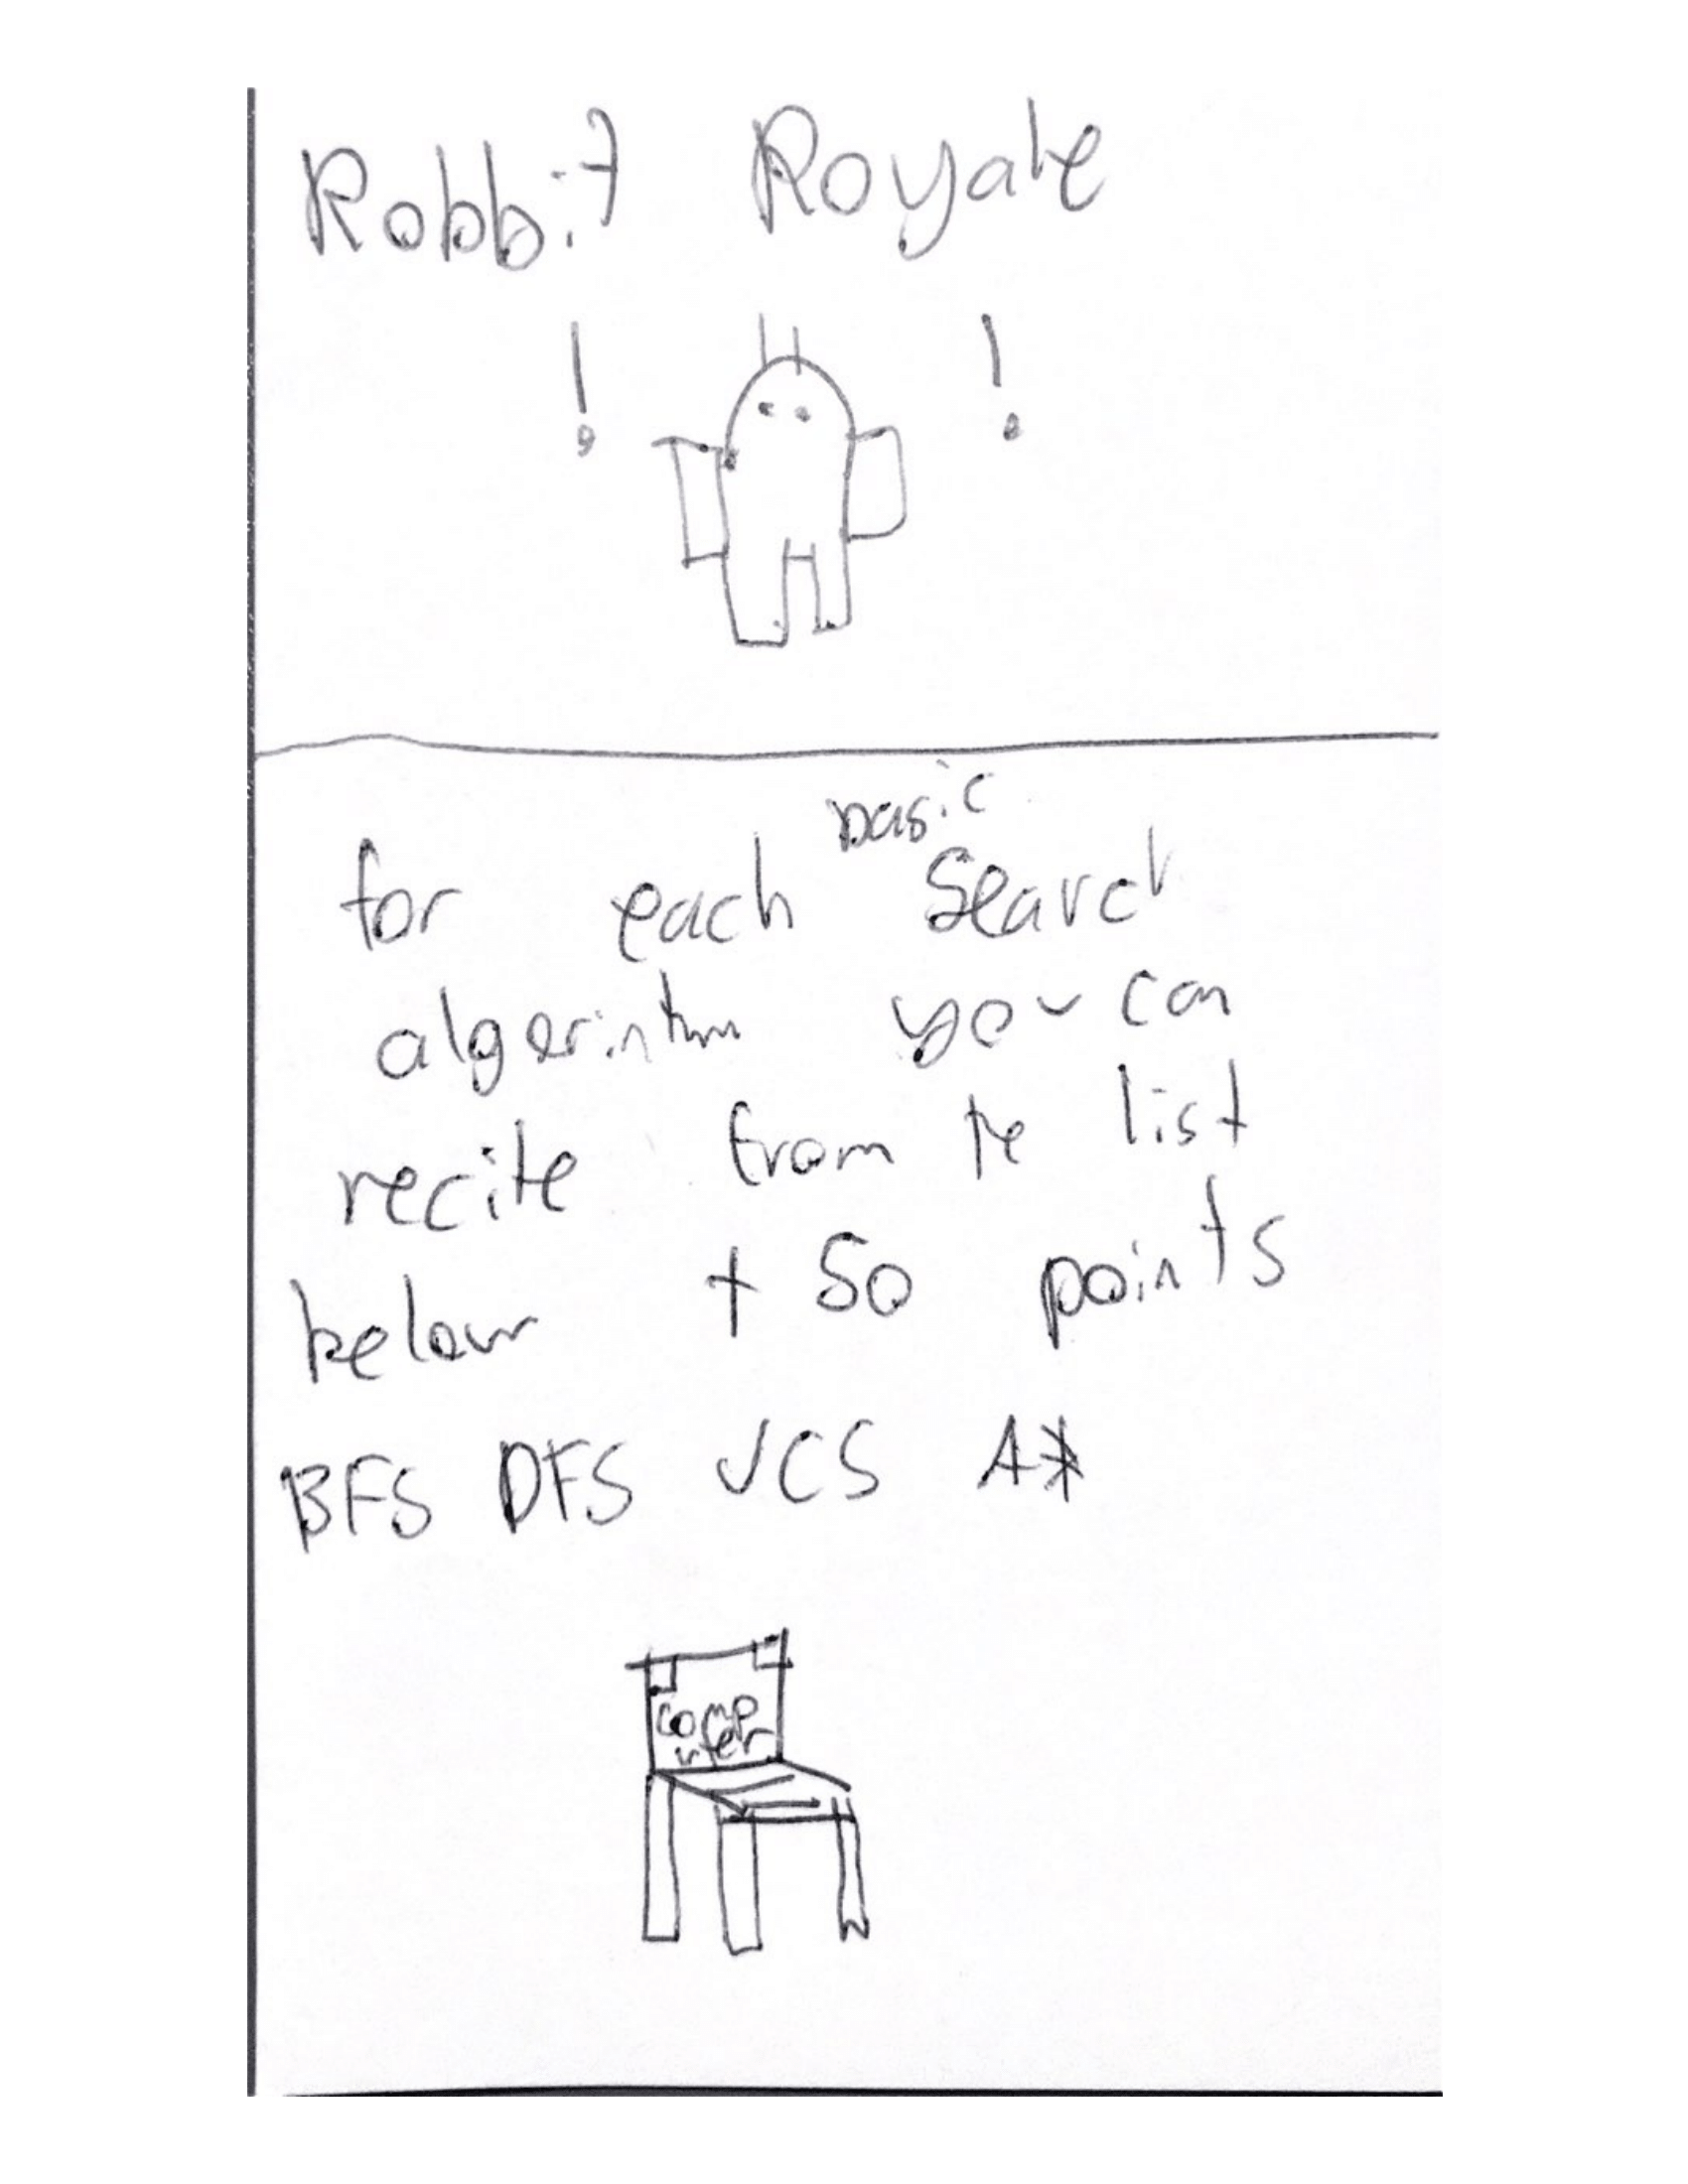 Robbit Royale
! !
basic
for each search
algorinthm you can
recite from the list
below + 50 points
BFS DFS UCS A*
comp
uter